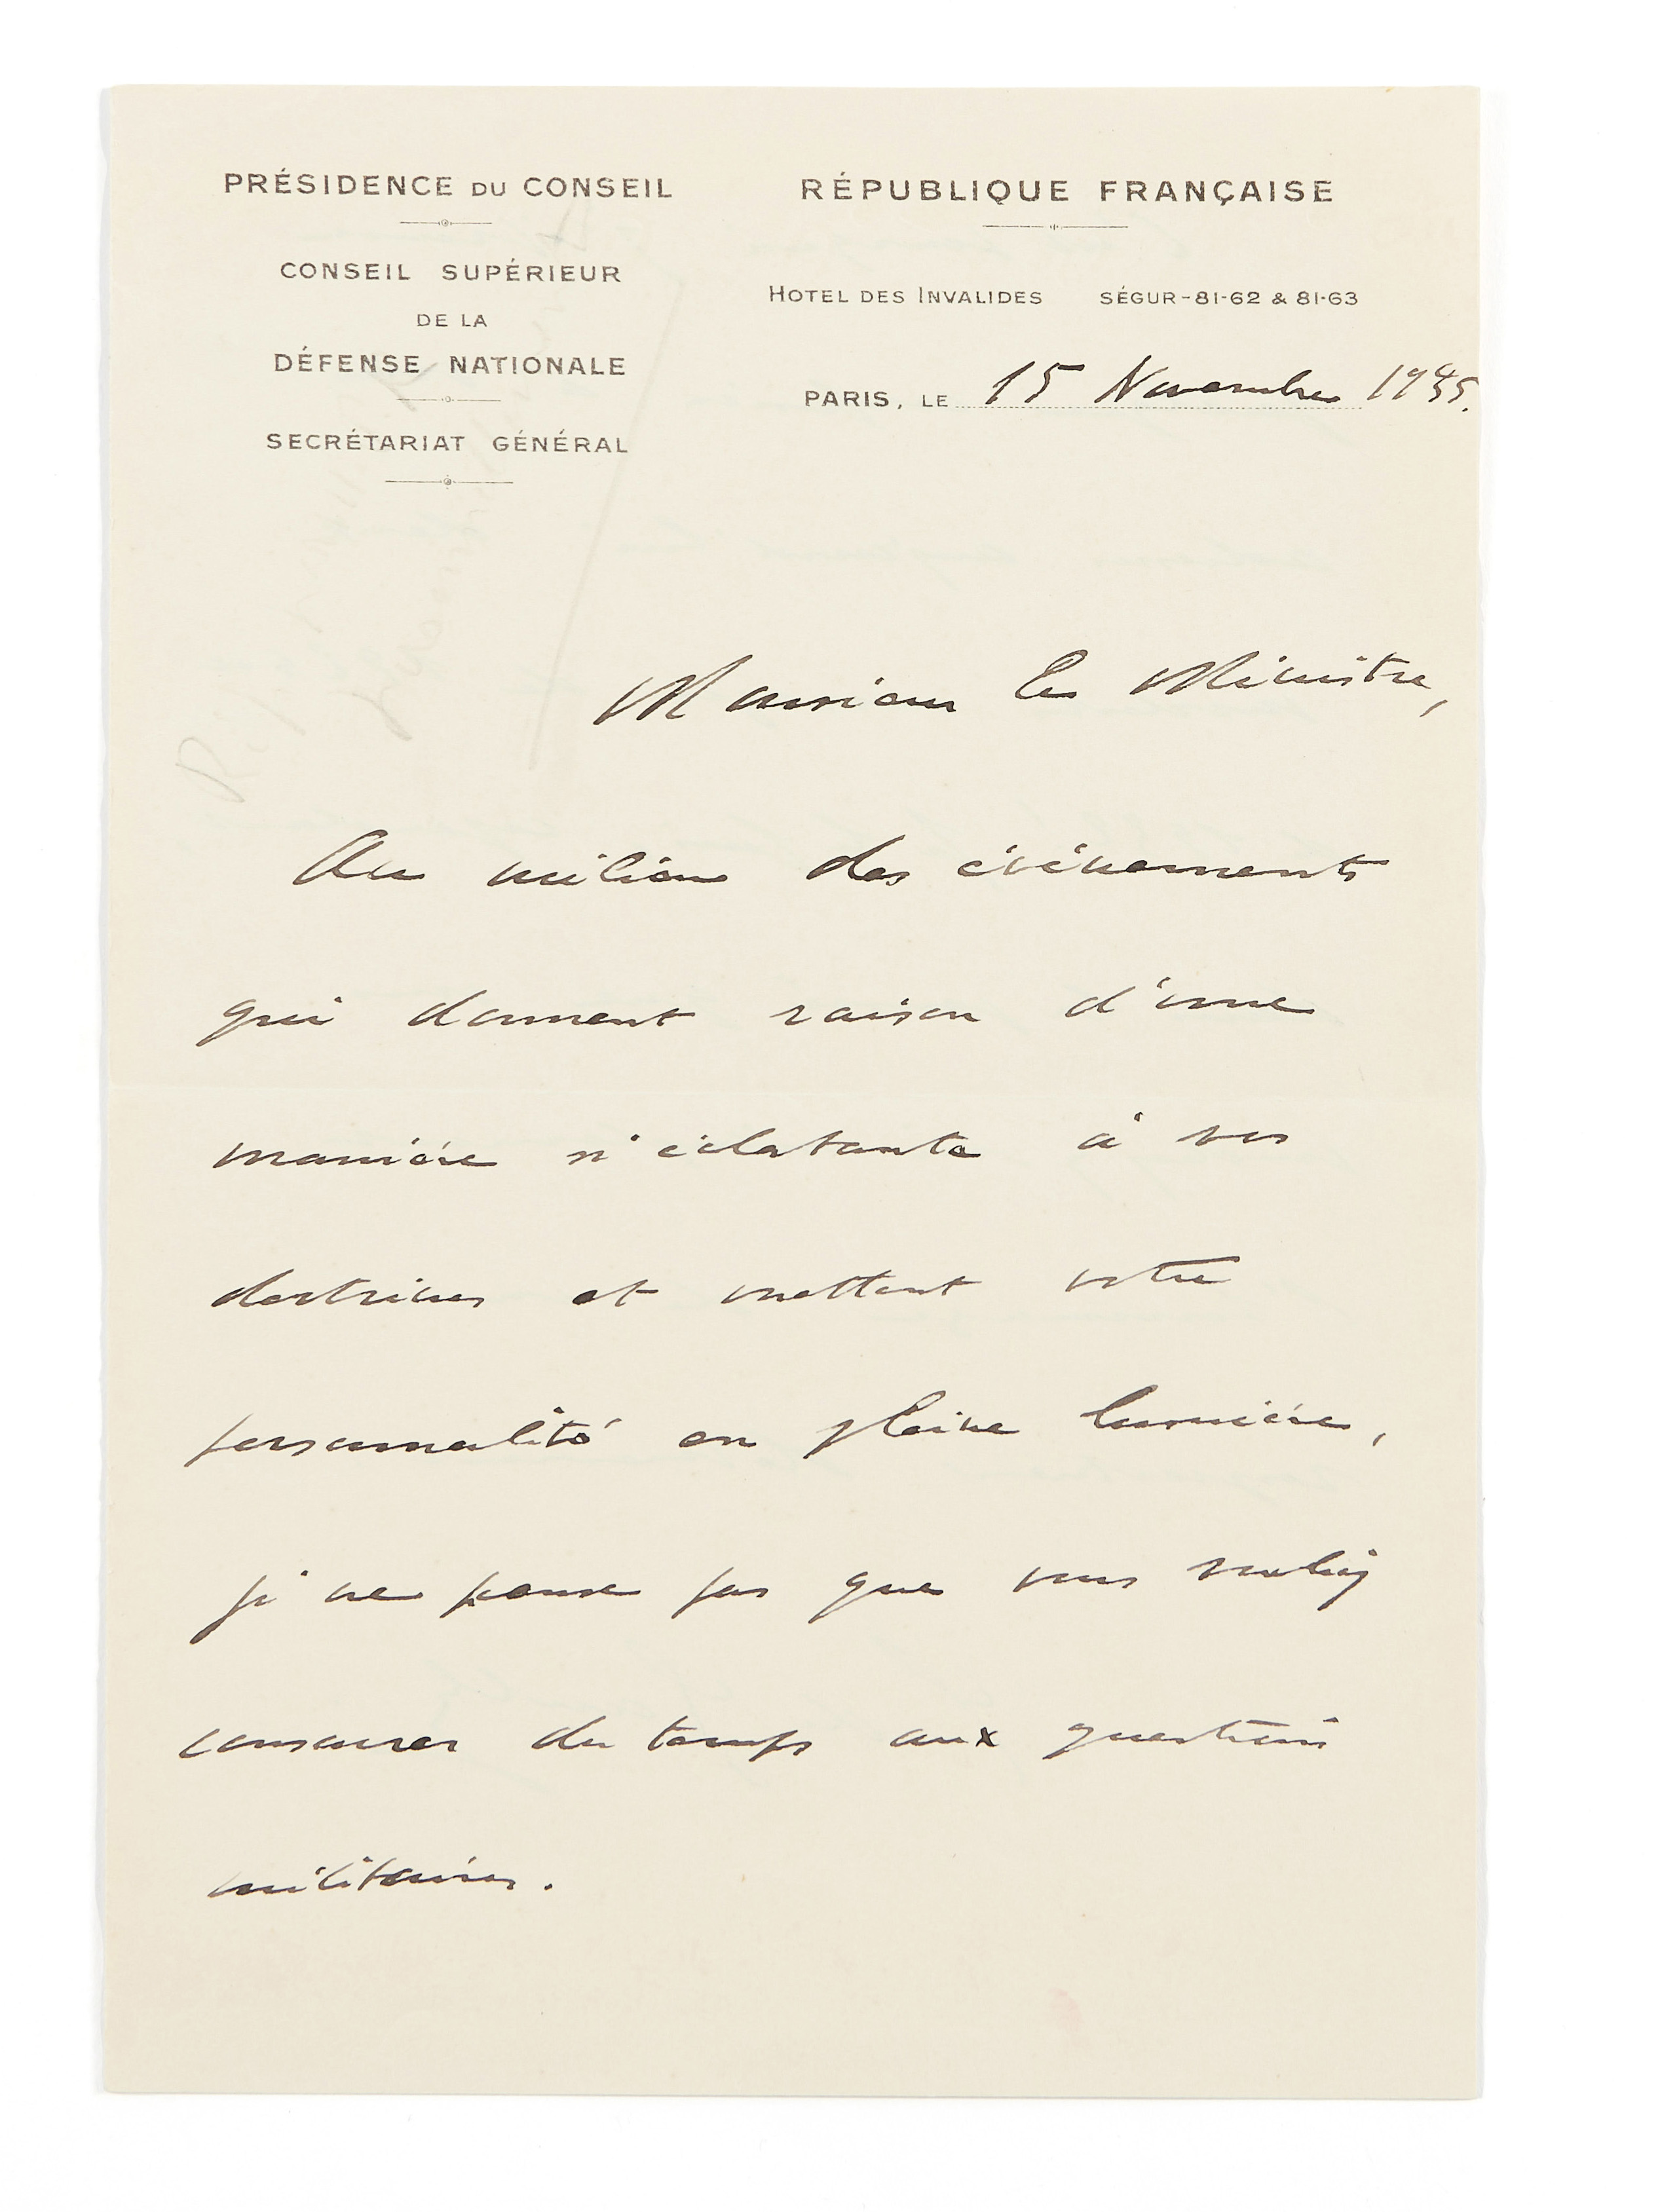 PRÉSIDENCE DU CONSEIL
CONSEIL SUPÉRIEUR
DE LA
DÉFENSE NATIONALE
SECRÉTARIAT GÉNÉRAL
RÉPUBLIQUE FRANÇAISE
HOTEL DES INVALIDES SÉGUR-81-62 & 81-63
PARIS, LE 15 Novembre 1935.
Monsieur le Ministre,
Au milieu des événements
qui donnent raison d'une
manière si éclatante à vos
doctrines et mettent votre
personnalité en pleine lumière,
je ne pense pas que vous vouliez
consacrer du temps aux questions
militaires.